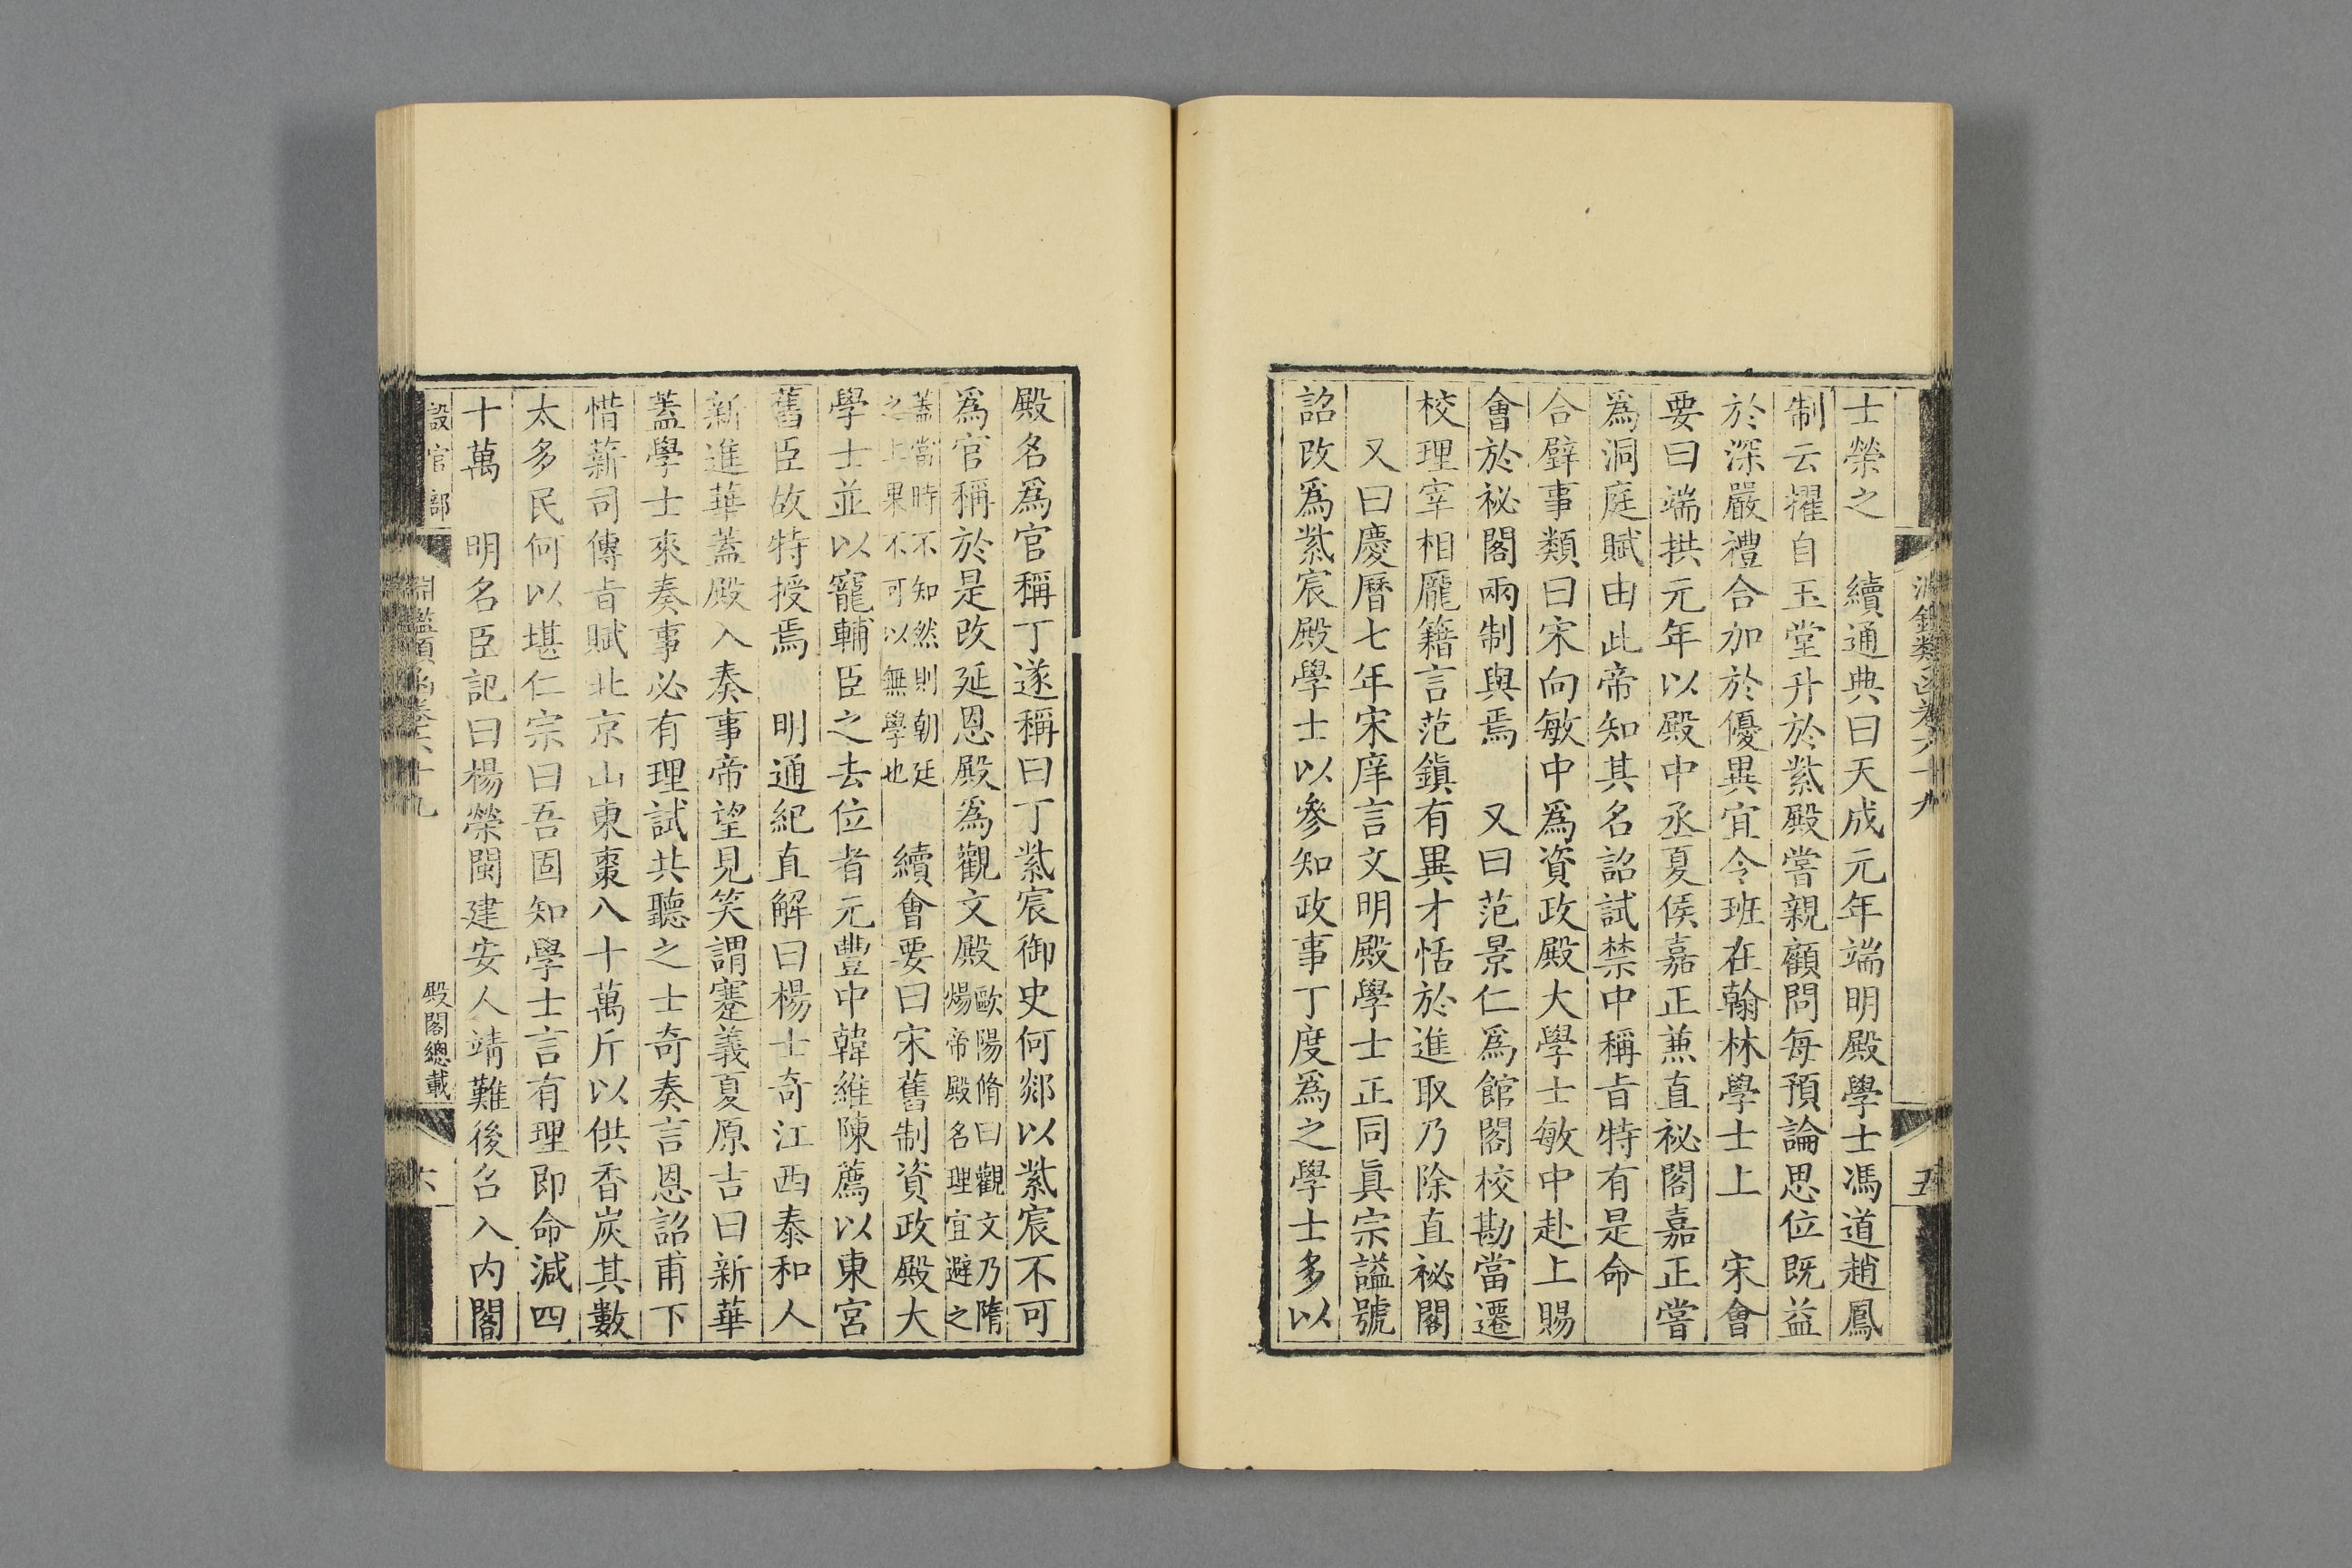 淵鑑類函卷六十九
五
士榮之　續通典曰天成元年端明殿學士馮道趙鳳
制云擢自玉堂升於紫殿嘗親顧問每預論思位既益
於深嚴禮合加於優異宜令班在翰林學士上　宋會
要曰端拱元年以殿中丞夏侯嘉正兼直祕閣嘉正嘗
爲洞庭賦由此帝知其名詔試禁中稱旨特有是命
合璧事類曰宋向敏中爲資政殿大學士敏中赴上賜
會於祕閣兩制與焉　又曰范景仁爲館閣校勘當遷
校理宰相龐籍言范鎭有異才恬於進取乃除直祕閣
又曰慶曆七年宋庠言文明殿學士正同眞宗謚號
詔改爲紫宸殿學士以參知政事丁度爲之學士多以
殿名爲官稱丁遂稱曰丁紫宸御史何郯以紫宸不可
爲官稱於是改延恩殿爲觀文殿歐陽脩曰觀文乃隋煬帝殿名理宜避之
蓋當時不知然則朝廷之上果不可以無學也　續會要曰宋舊制資政殿大
學士並以寵輔臣之去位者元豐中韓維陳薦以東宮
舊臣故特授焉　明通紀直解曰楊士奇江西泰和人
新進華蓋殿入奏事帝望見笑謂蹇義夏原吉曰新華
蓋學士來奏事必有理試共聽之士奇奏言恩詔甫下
惜薪司傳旨賦北京山東棗八十萬斤以供香炭其數
太多民何以堪仁宗曰吾固知學士言有理即命減四
十萬　明名臣記曰楊榮閩建安人靖難後召入內閣
設官部
淵鑑類函卷六十九
殿閣總載
六